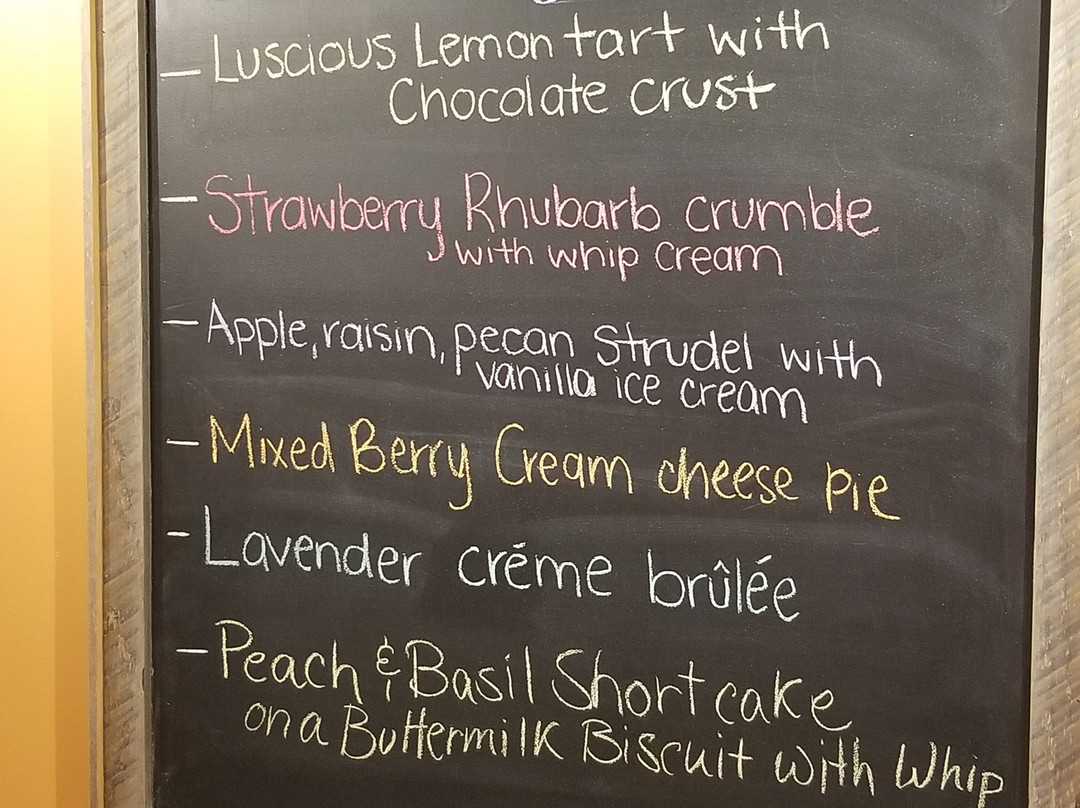 - Luscious Lemon tart with
Chocolate crust
- Strawberry Rhubarb crumble
with whip cream
- Apple, raisin, pecan Strudel with
vanilla ice cream
- Mixed Berry Cream cheese pie
- Lavender créme brûlée
- Peach & Basil Short cake
on a Buttermilk Biscuit with Whip